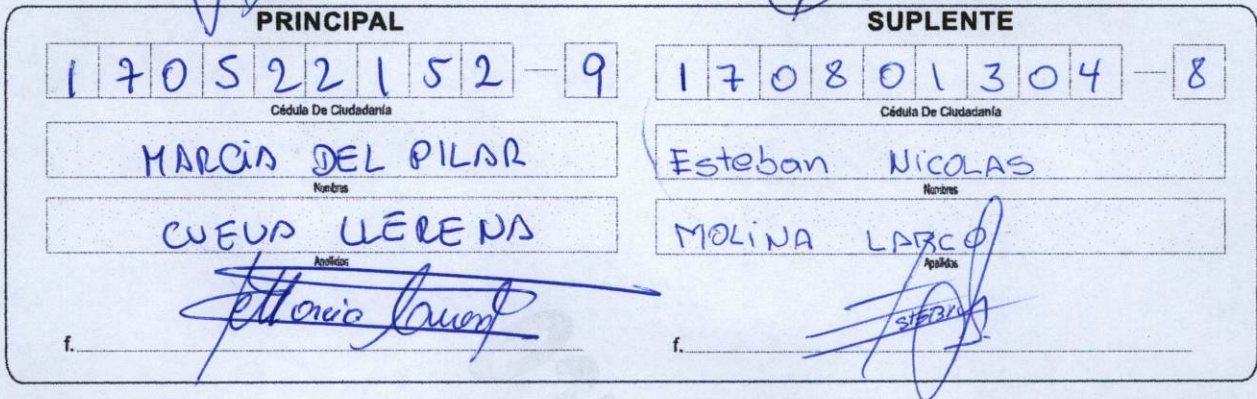 PRINCIPAL
170522152-9
Cédula De Ciudadanía
MARCIA DEL PILAR
Nombres
CUEVA LLERENA
Apellidos
Marcia Cueva
f.
SUPLENTE
170801304-8
Cédula De Ciudadanía
Esteban NICOLAS
Nombres
MOLINA LARCO
Apellidos
f.